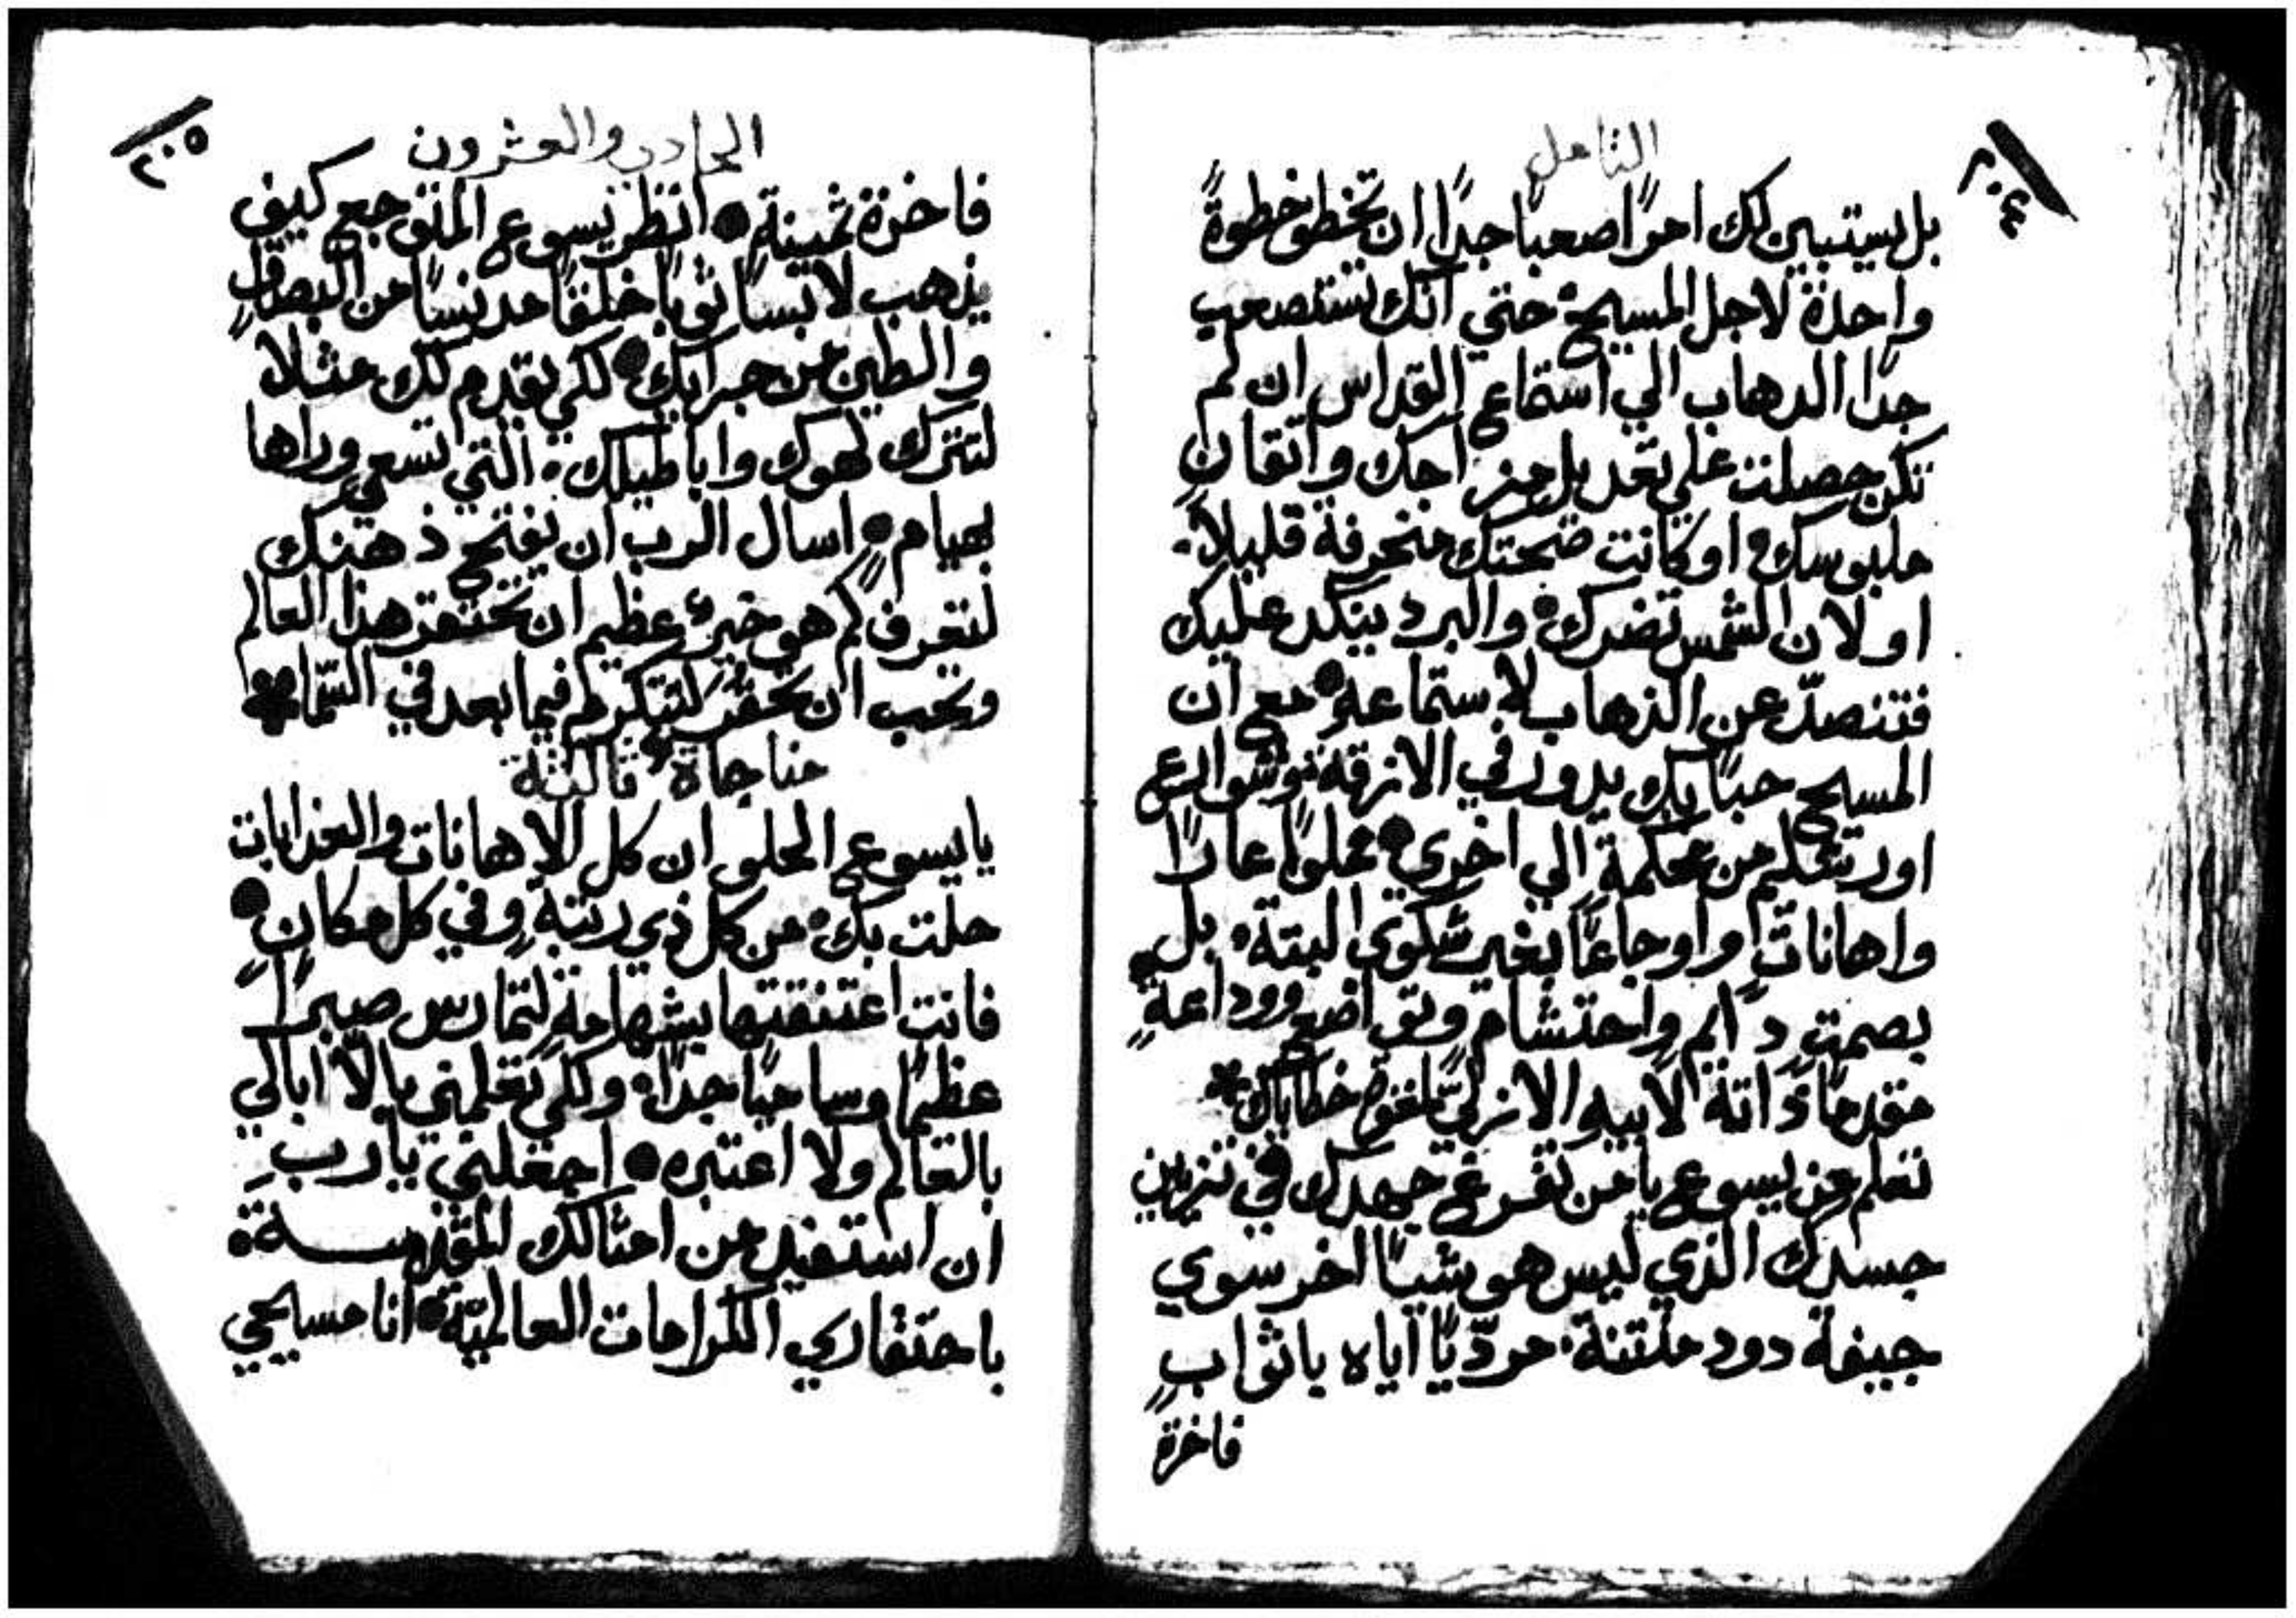 التامل
٢٠٤
بل يستبين لك امرًا صعبًا جدًا ان تخطو خطوةً
واحدة لاجل المسيح حتي انك تستصعب
جدًا الدهاب الي استماع القداس ان لم
تكن حصلت علي تعديل مزاجك واتقان
ملبوسك او كانت صحتك منحرفة قليلاً
او لان الشمس تضرك والبرد ينكد عليك
فتنصدّ عن الذهاب لاستماعه مع ان
المسيح حبًا بك يدور في الازقة
من محكمة الي اخري مملوًا عارًا
واهاناتٍ واوجاعًا بغير شكوي البتة بل
بصمتٍ دايمٍ واحتشامٍ وتواضع ووداعةٍ
مقدمًا ذاتة لابيه الازلي خطاياك
تعلم من يسوع يا من تفرغ جهدك في تزيين
جسدك الذي ليس هو شيًا اخر سوي
جيفة دود منتنة مردّيًا اياه باثوابٍ
فاخرةٍ
الحادي والعشرون
٢٠٥
فاخرة ثمينةٍ انظر يسوع المتوجع كيف
يذهب لابسًا ثوبًا خلقًا مدنسًا من البصاق
والطين من جرايك لكي يقدم لك مثلاً
لتترك لهوك واباطيلك التي تسعي وراها
بهيامٍ اسال الرب ان يفتح ذهنك
لتعرف كم هو خيرٌ عظيم ان تحتقر هذا العالم
وتحب ان تحتقر لتتكرم فيما بعد في السّما
مناجاة ثالثة
يا يسوع الحلو ان كل الاهانات والعذابات
حلت بك من كل ذي رتبةٍ وفي كل مكانٍ
فانت اعتنقتها بشهامةٍ لتمارس صبرًا
عظيمًا وساميًا جدًا ولكي تعلمني بالاّ ابالي
بالعالم ولا اعتبره اجعلني يا رب
ان استفيد من امثالك المقدسة
باحتقاري الكرامات العالميّة انا مسيحي